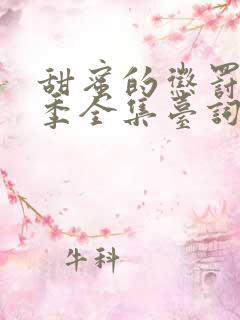 甜蜜的懲罰
季全集臺詞
牛科